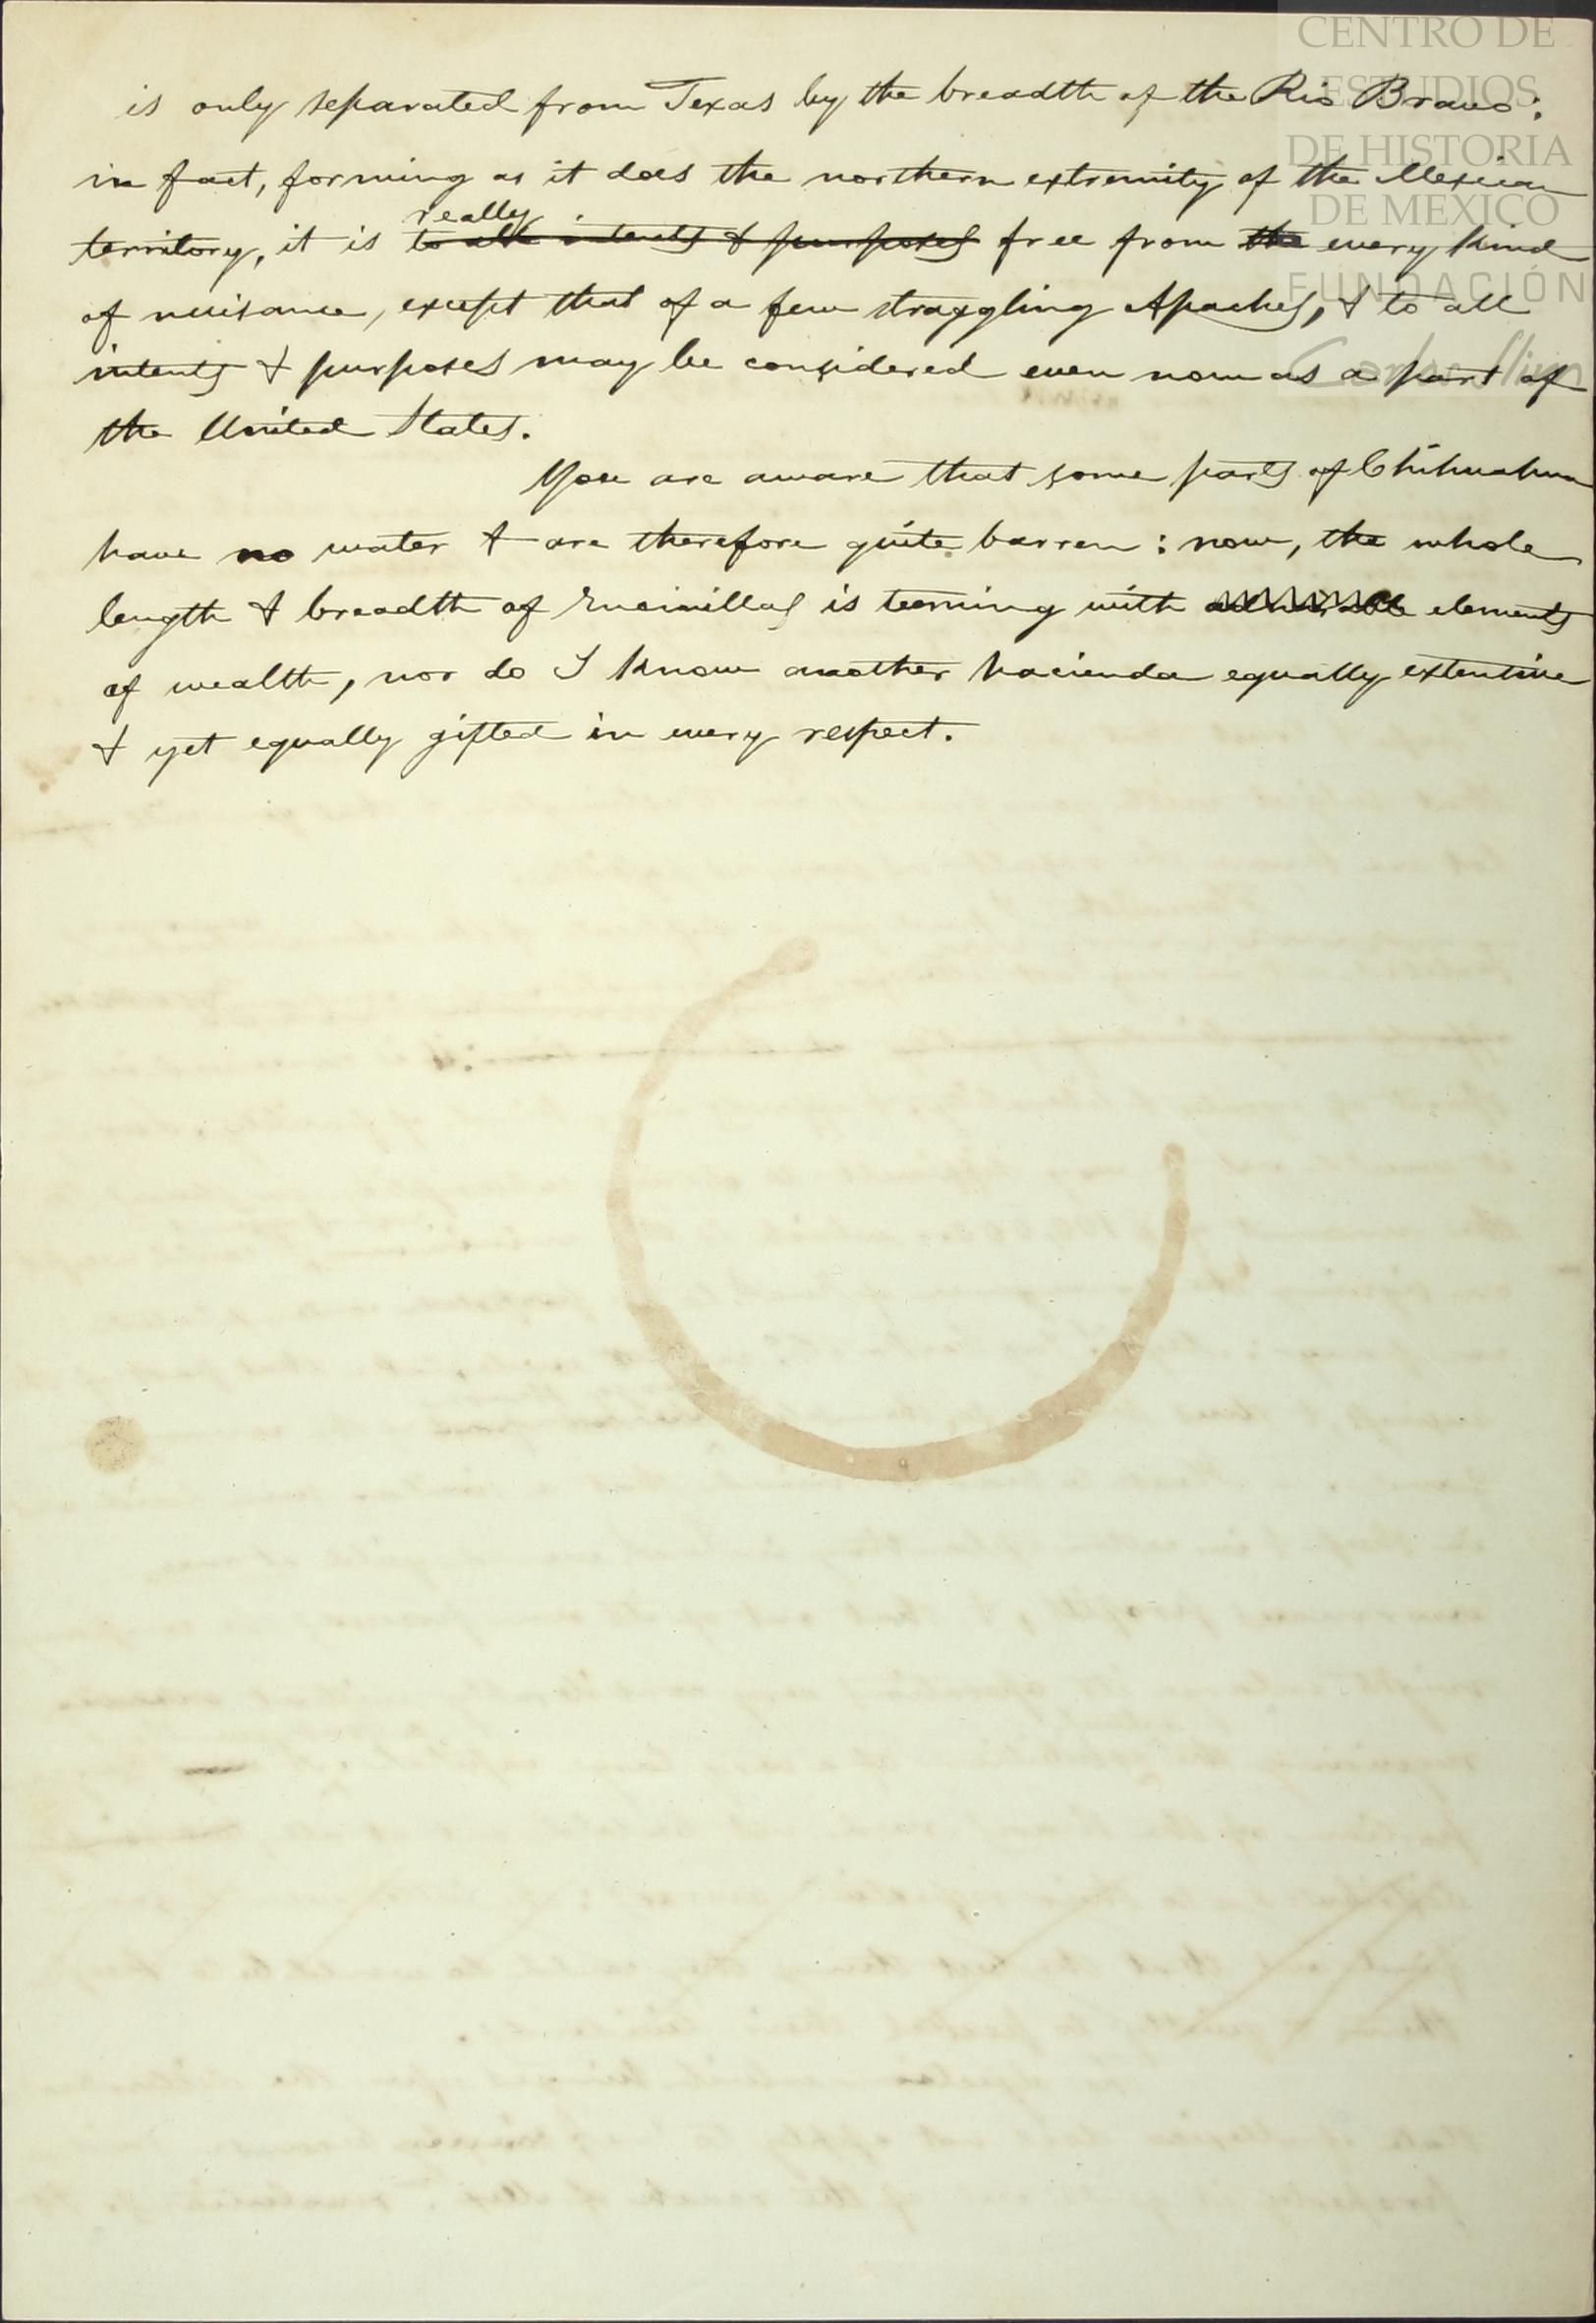 CENTRO DE
ESTUDIOS
DE HISTORIA
DE MEXICO
FUNDACIÓN
Carlos Slim
is only separated from Texas by the breadth of the Rio Bravo:
in fact, forming as it does the northern extremity of the Mexican
really
territory, it is to all intents & purposes free from the every kind
of nuisance, except that of a few straggling Apaches, & to all
intents & purposes may be considered even now as a part of
the United States.
You are aware that some parts of Chihuahua
have no water & are therefore quite barren: now, the whole
length & breadth of Encinillas is teeming with elements
of wealth, nor do I know another hacienda equally extensive
& yet equally gifted in every respect.